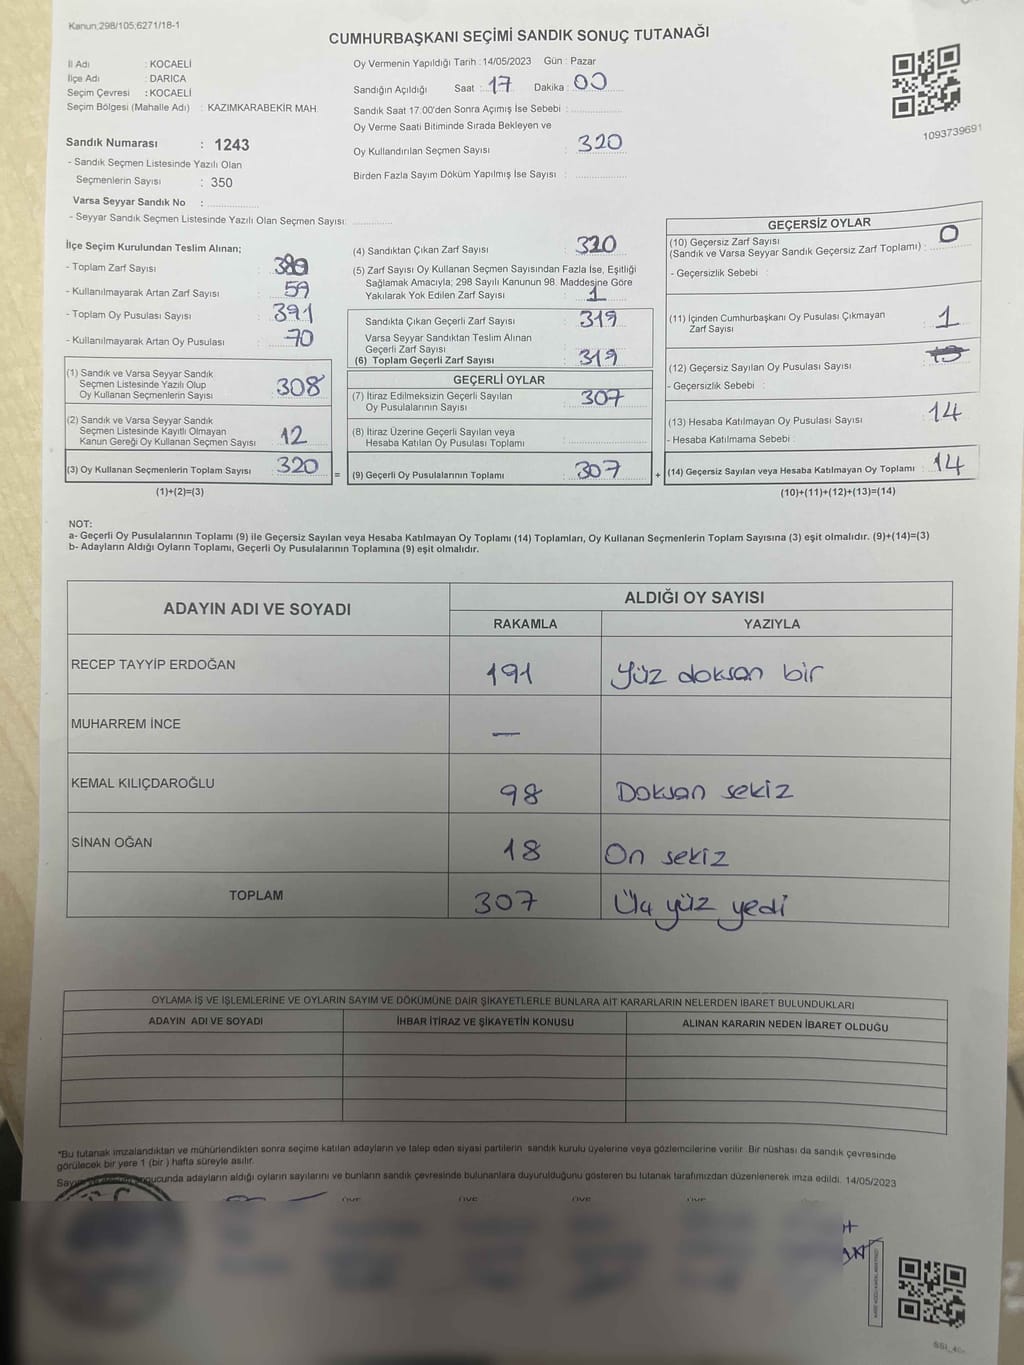 Kanun,298/105,6271/18-1
CUMHURBAŞKANI SEÇİMİ SANDIK SONUÇ TUTANAĞI
İl Adı : KOCAELİ
İlçe Adı : DARICA
Seçim Çevresi : KOCAELİ
Seçim Bölgesi (Mahalle Adı) : KAZIMKARABEKİR MAH.
Oy Vermenin Yapıldığı Tarih : 14/05/2023 Gün : Pazar
Sandığın Açıldığı Saat : 17 Dakika : 00
Sandık Saat 17:00'den Sonra Açımış İse Sebebi :
Oy Verme Saati Bitiminde Sırada Bekleyen ve
Oy Kullandırılan Seçmen Sayısı : 320
Birden Fazla Sayım Döküm Yapılmış İse Sayısı :
1093739691
Sandık Numarası : 1243
- Sandık Seçmen Listesinde Yazılı Olan
Seçmenlerin Sayısı : 350
Varsa Seyyar Sandık No :
- Seyyar Sandık Seçmen Listesinde Yazılı Olan Seçmen Sayısı:
İlçe Seçim Kurulundan Teslim Alınan;
- Toplam Zarf Sayısı : 380
- Kullanılmayarak Artan Zarf Sayısı : 59
- Toplam Oy Pusulası Sayısı : 391
- Kullanılmayarak Artan Oy Pusulası : 70
(1) Sandık ve Varsa Seyyar Sandık
Seçmen Listesinde Yazılı Olup
Oy Kullanan Seçmenlerin Sayısı : 308
(2) Sandık ve Varsa Seyyar Sandık
Seçmen Listesinde Kayıtlı Olmayan
Kanun Gereği Oy Kullanan Seçmen Sayısı : 12
(3) Oy Kullanan Seçmenlerin Toplam Sayısı : 320 =
(1)+(2)=(3)
(4) Sandıktan Çıkan Zarf Sayısı : 320
(5) Zarf Sayısı Oy Kullanan Seçmen Sayısından Fazla İse, Eşitliği
Sağlamak Amacıyla; 298 Sayılı Kanunun 98. Maddesine Göre
Yakılarak Yok Edilen Zarf Sayısı : 1
Sandıkta Çıkan Geçerli Zarf Sayısı : 319
Varsa Seyyar Sandıktan Teslim Alınan
Geçerli Zarf Sayısı :
(6) Toplam Geçerli Zarf Sayısı : 319
GEÇERLİ OYLAR
(7) İtiraz Edilmeksizin Geçerli Sayılan
Oy Pusulalarının Sayısı : 307
(8) İtiraz Üzerine Geçerli Sayılan veya
Hesaba Katılan Oy Pusulası Toplamı :
(9) Geçerli Oy Pusulalarının Toplamı : 307 +
GEÇERSİZ OYLAR
(10) Geçersiz Zarf Sayısı
(Sandık ve Varsa Seyyar Sandık Geçersiz Zarf Toplamı) : 0
- Geçersizlik Sebebi :
(11) İçinden Cumhurbaşkanı Oy Pusulası Çıkmayan
Zarf Sayısı : 1
(12) Geçersiz Sayılan Oy Pusulası Sayısı : 13
- Geçersizlik Sebebi :
(13) Hesaba Katılmayan Oy Pusulası Sayısı : 14
- Hesaba Katılmama Sebebi :
(14) Geçersiz Sayılan veya Hesaba Katılmayan Oy Toplamı : 14
(10)+(11)+(12)+(13)=(14)
NOT:
a- Geçerli Oy Pusulalarının Toplamı (9) ile Geçersiz Sayılan veya Hesaba Katılmayan Oy Toplamı (14) Toplamları, Oy Kullanan Seçmenlerin Toplam Sayısına (3) eşit olmalıdır. (9)+(14)=(3)
b- Adayların Aldığı Oyların Toplamı, Geçerli Oy Pusulalarının Toplamına (9) eşit olmalıdır.
ADAYIN ADI VE SOYADI ALDIĞI OY SAYISI
RAKAMLA YAZIYLA
RECEP TAYYİP ERDOĞAN 191 Yüz doksan bir
MUHARREM İNCE —
KEMAL KILIÇDAROĞLU 98 Doksan sekiz
SİNAN OĞAN 18 On sekiz
TOPLAM 307 Üç yüz yedi
OYLAMA İŞ VE İŞLEMLERİNE VE OYLARIN SAYIM VE DÖKÜMÜNE DAİR ŞİKAYETLERLE BUNLARA AİT KARARLARIN NELERDEN İBARET BULUNDUKLARI
ADAYIN ADI VE SOYADI İHBAR İTİRAZ VE ŞİKAYETİN KONUSU ALINAN KARARIN NEDEN İBARET OLDUĞU
*Bu tutanak imzalandıktan ve mühürlendikten sonra seçime katılan adayların ve talep eden siyasi partilerin sandık kurulu üyelerine veya gözlemcilerine verilir. Bir nüshası da sandık çevresinde
görülecek bir yere 1 (bir) hafta süreyle asılır.
adayların aldığı oyların sayılarını ve bunların sandık çevresinde bulunanlara duyurulduğunu gösteren bu tutanak tarafımızdan düzenlenerek imza edildi. 14/05/2023